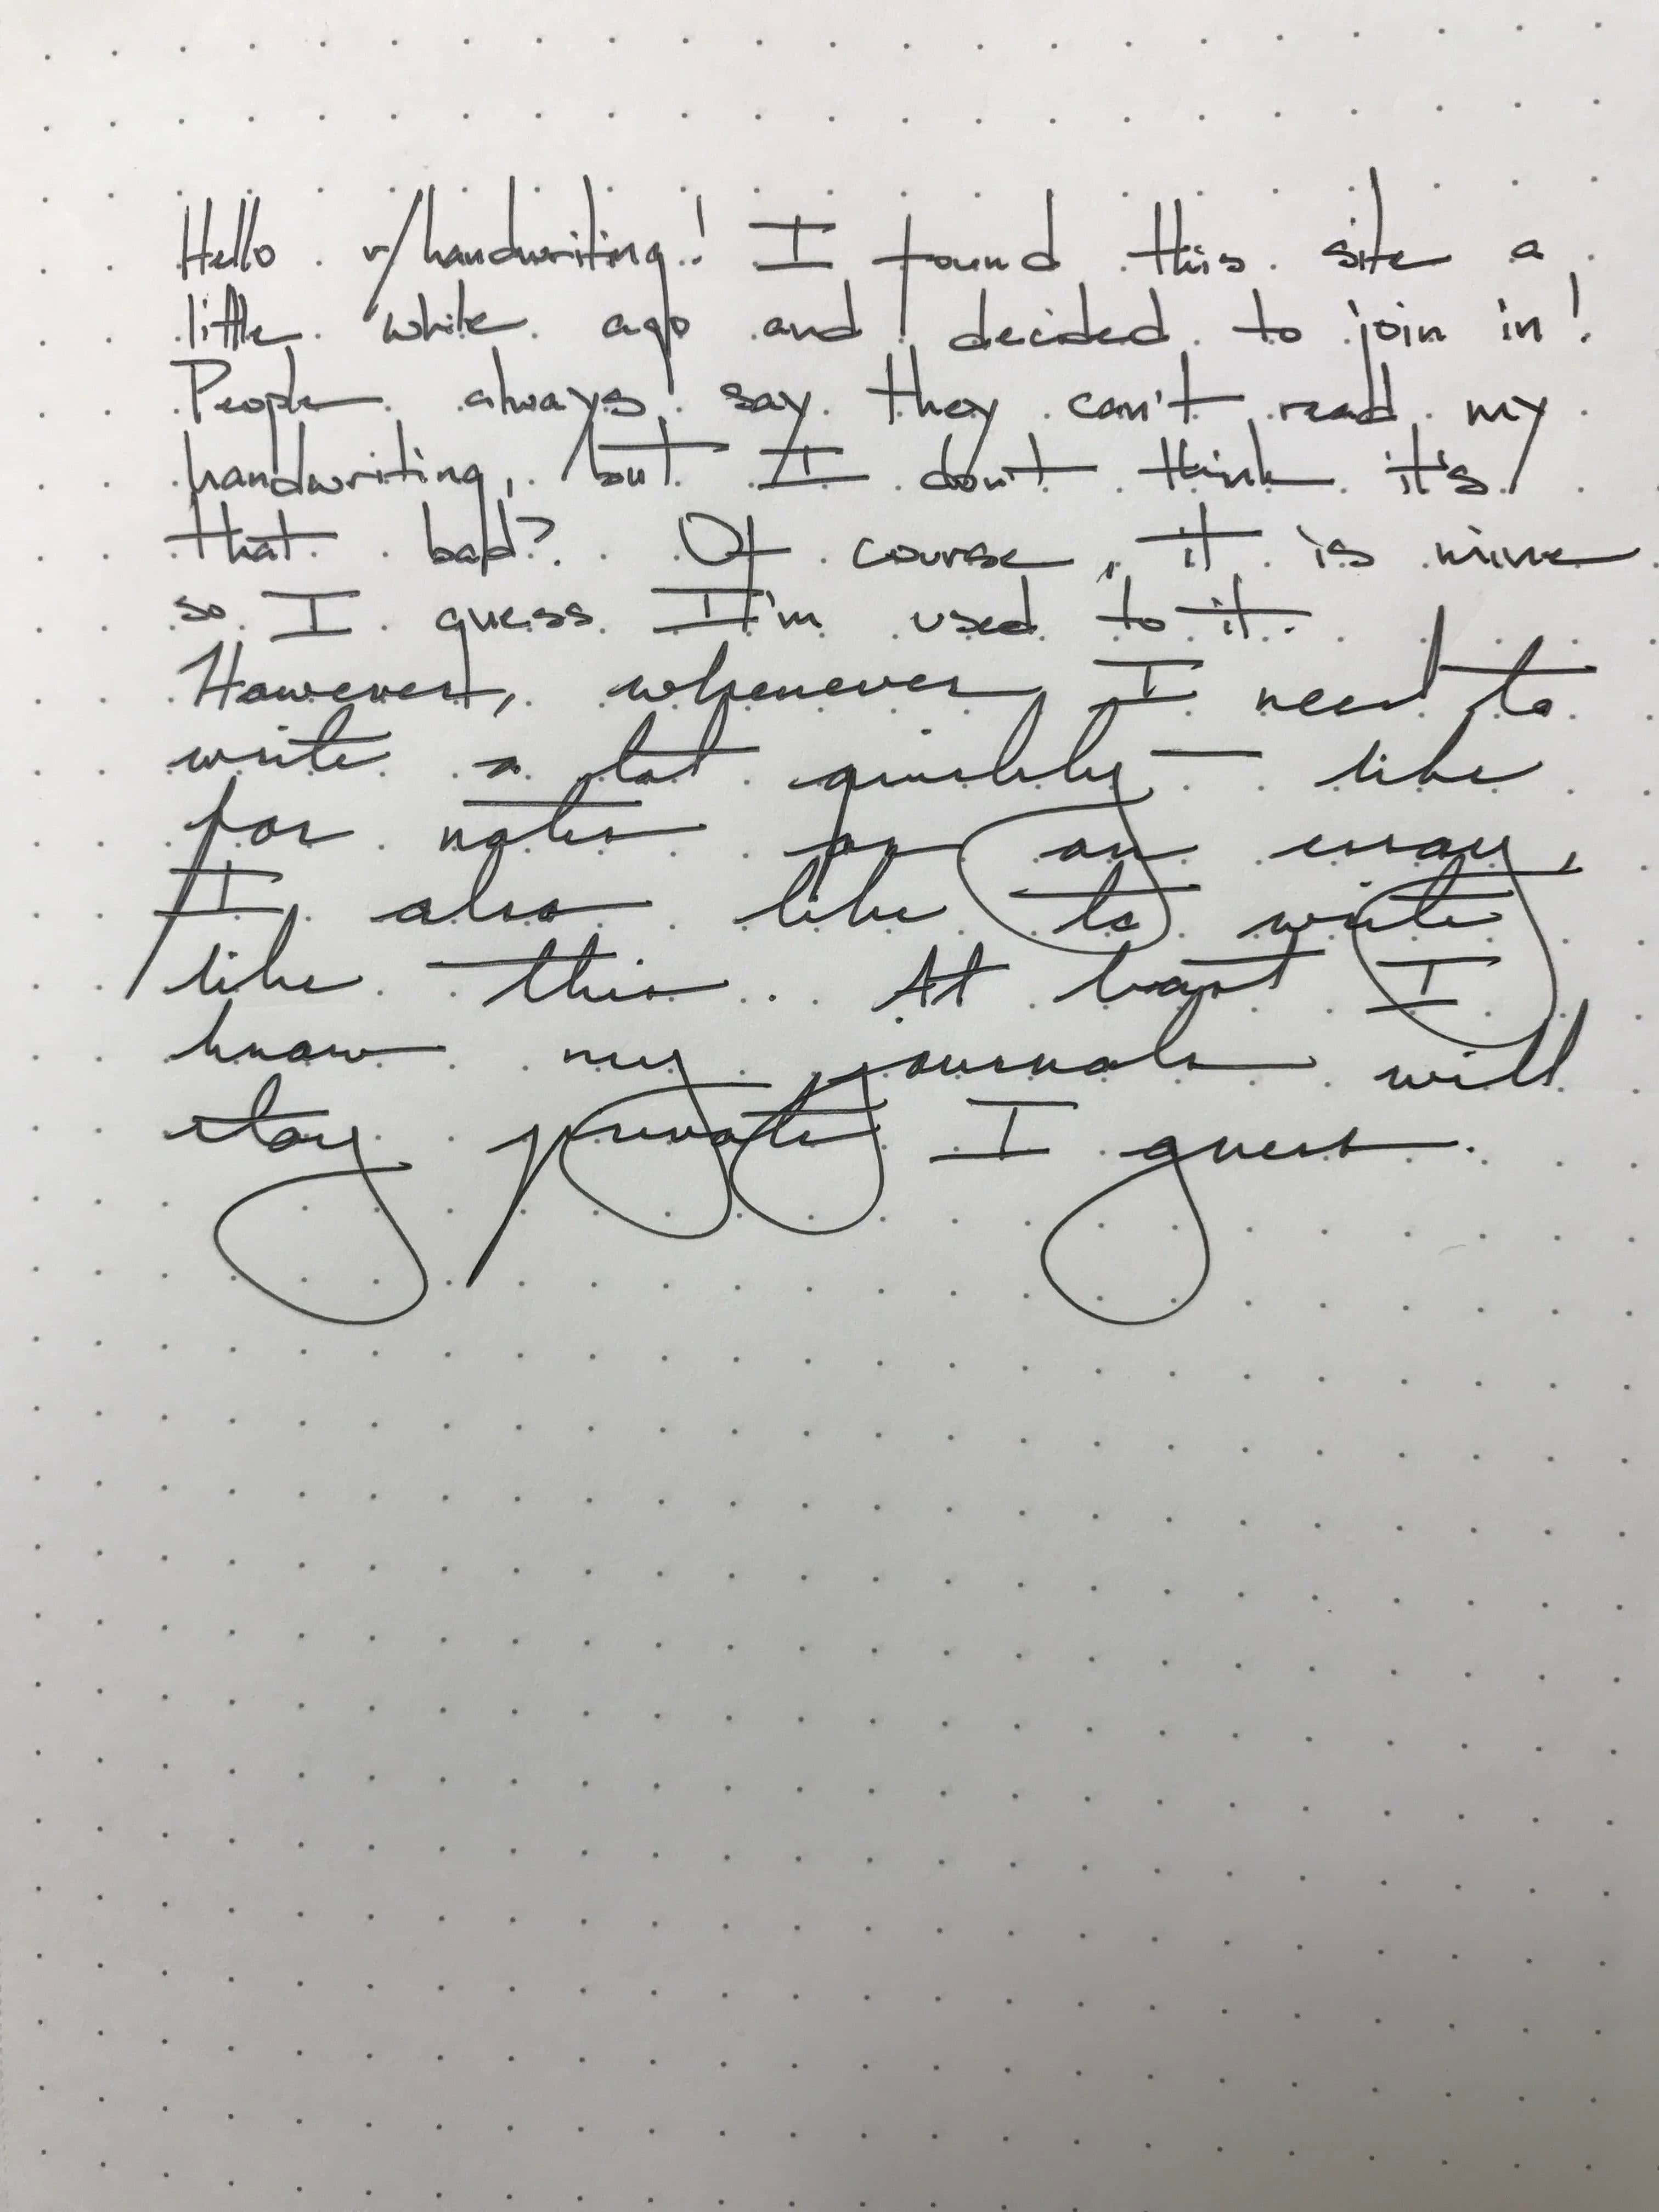 Hello r/handwriting! I found this site a
little while ago and decided to join in!
People always say they can't read my
handwriting, but I don't think it's
that bad? Of course, it is mine
so I guess I'm used to it.
However, whenever I need to
write a lot quickly — like
for notes or an essay,
I also like to write
like this. At least I
know my journals will
stay private I guess.